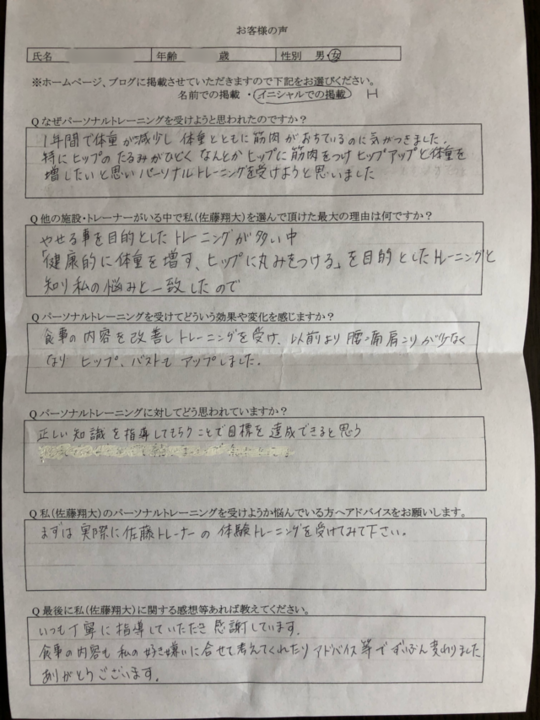 お客様の声
氏名 年齢 歳 性別 男・女
※ホームページ、ブログに掲載させていただきますので下記をお選びください。
名前での掲載・イニシャルでの掲載 H
Q なぜパーソナルトレーニングを受けようと思われたのですか？
1年間で体重が減少し 体重とともに筋肉がおちているのに気がつきました。
特にヒップのたるみがひどく なんとかヒップに筋肉をつけ ヒップアップと体重を
増したいと思いパーソナルトレーニングを受けようと思いました
Q 他の施設・トレーナーがいる中で私（佐藤翔大）を選んで頂けた最大の理由は何ですか？
やせる事を目的としたトレーニングが多い中
「健康的に体重を増す、ヒップに丸みをつける」を目的としたトレーニングと
知り私の悩みと一致したので
Q パーソナルトレーニングを受けてどういう効果や変化を感じますか？
食事の内容を改善しトレーニングを受け、以前より腰痛肩こりが少なく
なり ヒップ、バストも アップしました。
Q パーソナルトレーニングに対してどう思われていますか？
正しい知識を指導してもらうことで目標を達成できると思う
Q 私（佐藤翔大）のパーソナルトレーニングを受けようか悩んでいる方へアドバイスをお願いします。
まずは実際に佐藤トレーナーの体験トレーニングを受けてみて下さい。
Q 最後に私（佐藤翔大）に関する感想等あれば教えてください。
いつも丁寧に指導していただき感謝しています。
食事の内容も私の好き嫌いに合せて考えてくれたりアドバイス等でずいぶん変わりました
ありがとうございます。